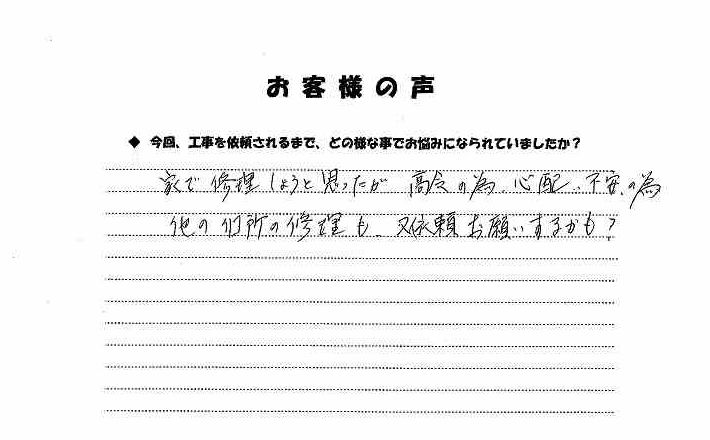 お客様の声
◆ 今回、工事を依頼されるまで、どの様な事でお悩みになられていましたか？
家で修理しようと思ったが 高令の為、心配、不安、の為
他の個所の修理も、又依頼お願いするかも？